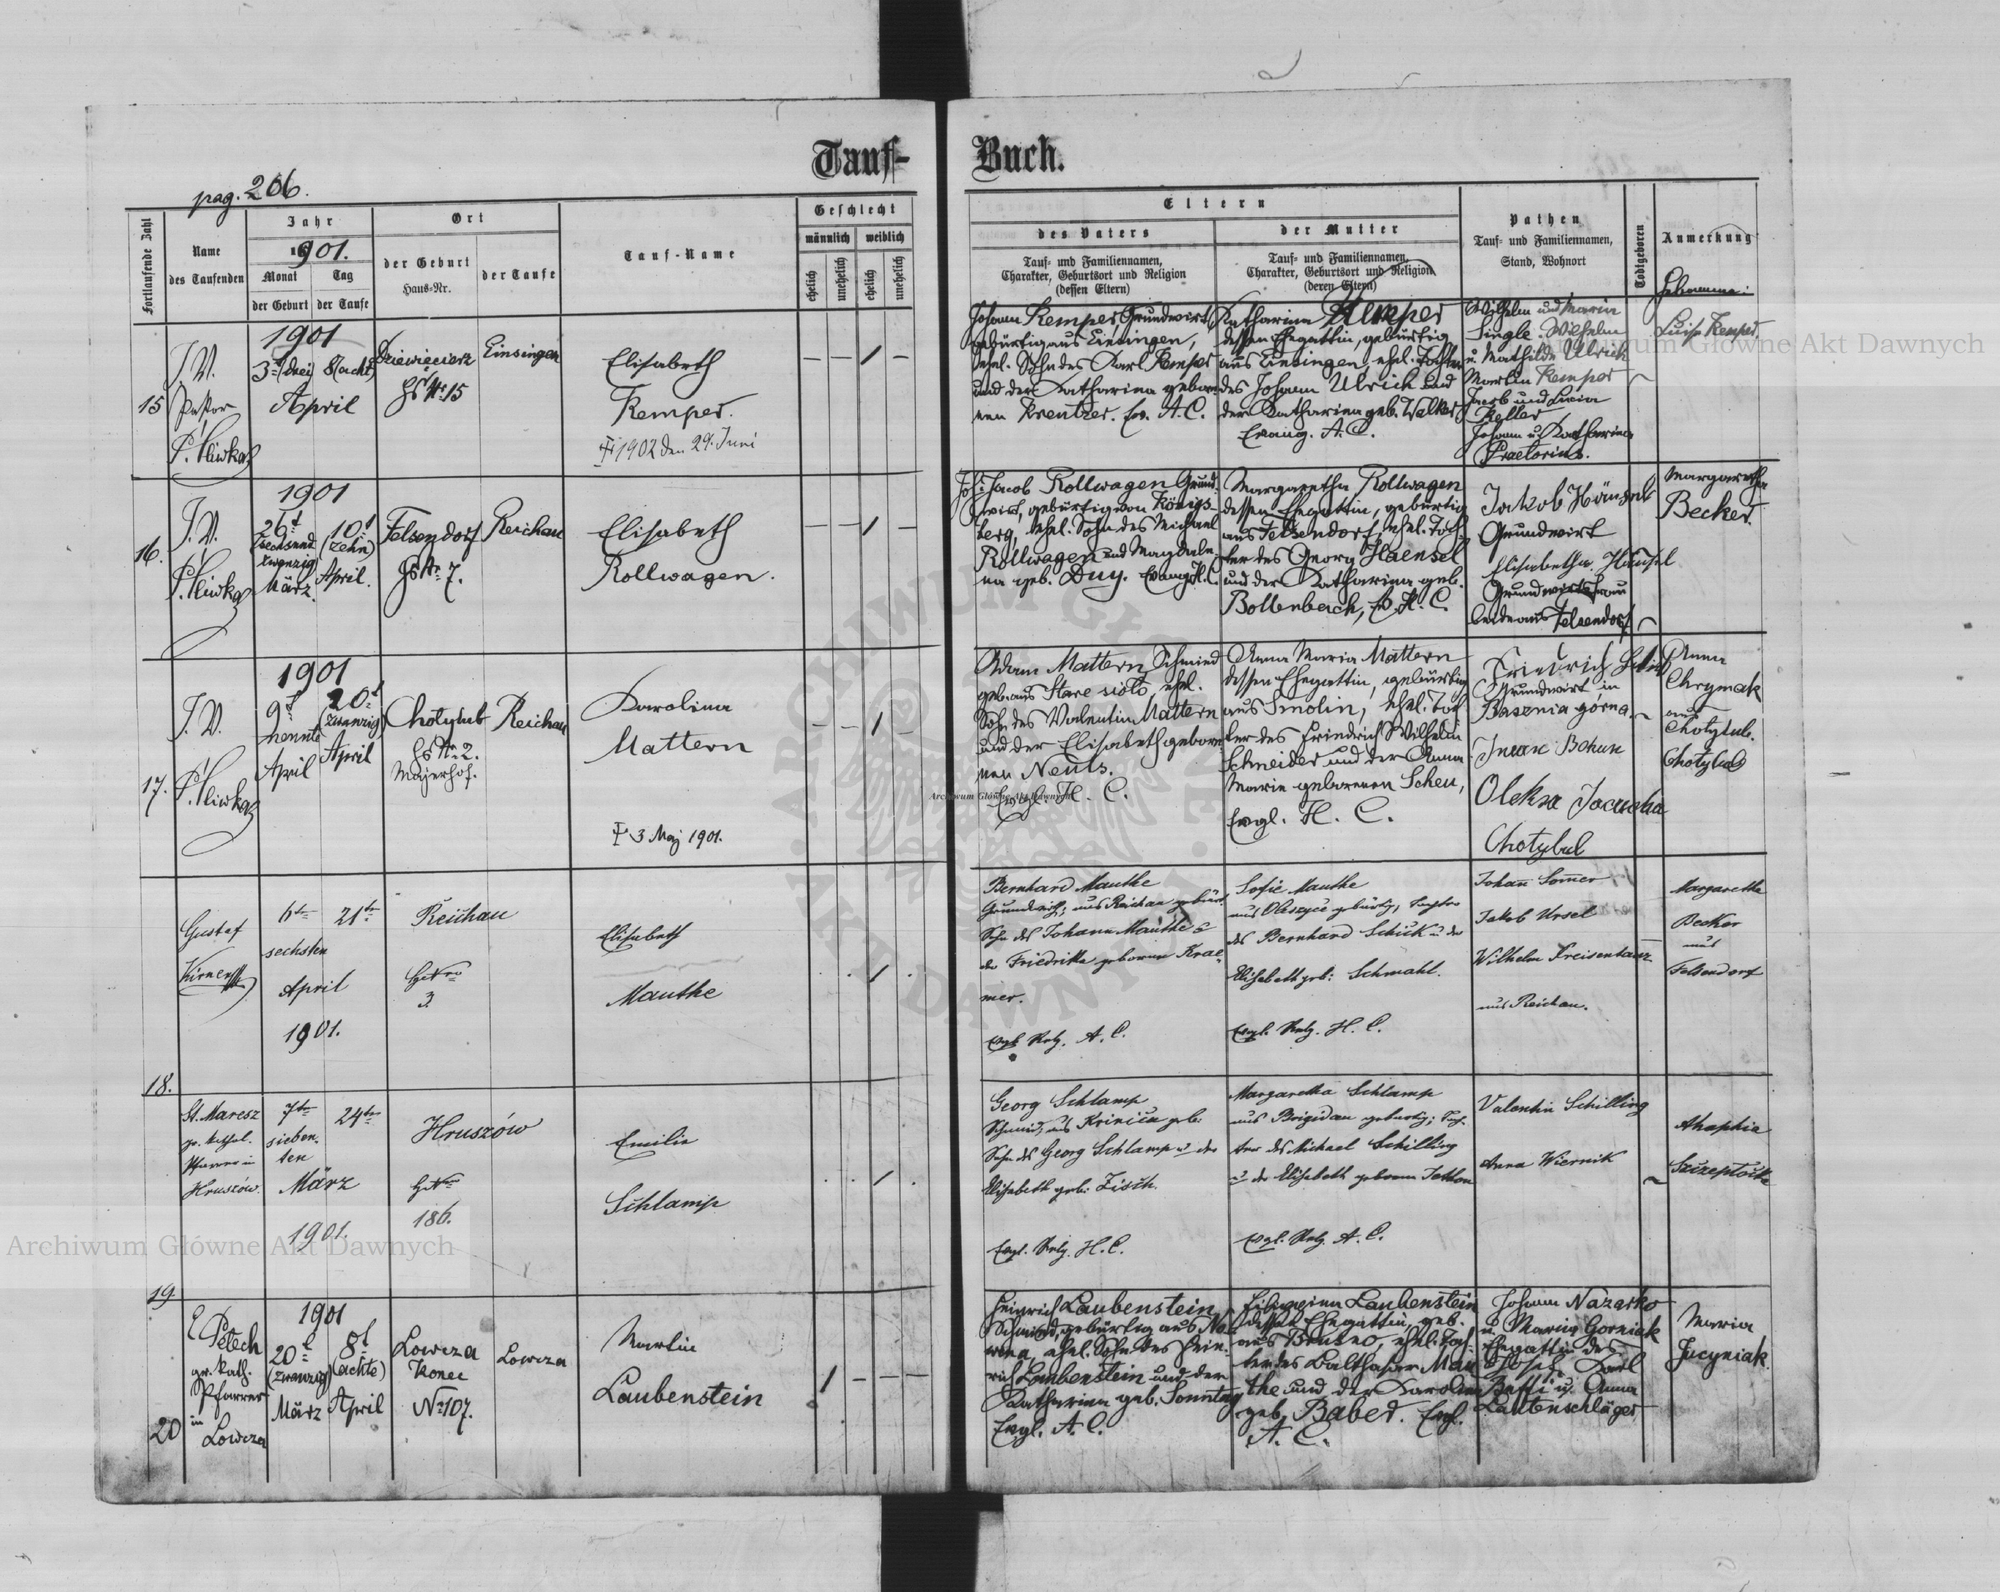 Tauf-
Buch.
pag. 206.
Fortlaufende Zahl
Name
des Taufenden
Jahr
1901.
Monat
Tag
der Geburt
der Taufe
Ort
der Geburt
Haus-Nr.
der Taufe
Tauf-Name
Geschlecht
männlich
weiblich
ehelich
unehelich
ehelich
unehelich
Eltern
des Vaters
Tauf- und Familiennamen,
Charakter, Geburtsort und Religion
(dessen Eltern)
der Mutter
Tauf- und Familiennamen,
Charakter, Geburtsort und Religion
(deren Eltern)
Pathen
Tauf- und Familiennamen,
Stand, Wohnort
Todtgeboren
Anmerkung
Hebamme:
15
J. V.
Pastor
1901
3t (drei) 8 (acht)
April
Dziewięcierz
Hs Nr. 15
Einsingen
Elisabeth
Kemper.
1902 den 29. Juni
Johann Kemper, Grundwirt,
gebürtig aus Einsingen,
ehel. Sohn des Karl Kemper
und der Katharina gebore-
nen Kreutzer. Ev. A. C.
Katharina Kemper
dessen Ehegattin, gebürtig
aus Einsingen, ehel. Tochter
des Johann Ulrich und
der Katharina geb. Walker
Evang. A. C.
Wilhelm und Maria
Single. Wilhelm
u. Mathilde Ulrich
Martin Kemper
Jacob und Luisa
Keller
Johann u. Katharina
Praetorius.
Luise Kemper
16.
J. V.
1901
26t
(sechsund
zwanzig)
März.
10t
(zehn)
April.
Felsendorf
Hs Nr. 7.
Reichau
Elisabeth
Rollwagen.
Joh. Jacob Rollwagen Grund-
wirt, gebürtig von Königs-
berg, ehel. Sohn des Michael
Rollwagen und Magdale-
na geb. Duy. Evang. H. C.
Margaretha Rollwagen
dessen Ehegattin, gebürtig
aus Felsendorf, ehel. Toch-
ter des Georg Haensel
und der Katharina geb.
Bollenbach, Ev. H. C.
Jakob Hänsel
Grundwirt
Elisabetha Hänsel
Grundwirtsfrau
beide aus Felsendorf
Margaretha
Becker.
17.
J. V.
1901
9t
neunte
April
20t
(zwanzig)
April
Chotylub
Hs Nr. 2.
Majerhof.
Reichau
Karolina
Mattern
3 Maj 1901.
Adam Mattern, Schmied
geb. aus Stare sioło, ehel.
Sohn des Valentin Mattern
und der Elisabeth gebore-
nen Neuls.
Evgl. H. C.
Anna Maria Mattern
dessen Ehegattin, gebürtig
aus Smolin, ehel. Toch-
ter des Friedrich Wilhelm
Schneider und der Anna
Marie geborenen Scheu,
Evgl. H. C.
Friedrich
Grundwirt in
Basznia gorna.
Iwan Bohun
Oleksa
Chotylub
Anna
Chrymak
aus
Chotylub.
Chotylub
18.
Gustaf
Kirner
6ten
sechsten
April
1901.
21ten
Reichau
Hs Nro
3.
Elisabeth
Mauthe
Bernhard Mauthe
Grundwirth, aus Reichau gebürt.
Sohn des Johann Mauthe &
der Friedrike geborene Krae-
mer.
Evgl. Relg. A. C.
Sofie Mauthe
aus Oleszyce gebürtig, Tochter
des Bernhard Schick u. der
Elisabeth geb: Schmahl.
Evgl. Relg. H. C.
Johann Somer
Jakob Ursel
Wilhelm Kreisentanz
aus Reichau.
Margaretha
Becker
aus
Felsendorf
19.
St. Maresz
gr. kathol.
Pfarrer in
Hruszów.
7ten
sieben-
ten
März
1901.
24ten
Hruszów
Hs Nro
186.
Emilia
Schlamp
Georg Schlamp
Schmied, aus Krinica geb.
Sohn des Georg Schlamp u. der
Elisabeth geb: Zisch.
Evgl. Relg. H. C.
Margaretha Schlamp
aus Brigidau gebürtig; Toch-
ter des Michael Schilling
u. der Elisabeth geborene Jethon
Evgl. Relg. A. C.
Valentin Schilling
Anna Wiernik
Ahaphia
20
Petech
gr. kath.
Pfarrer
in
Lowcza
1901
20t
(zwanzig)
März
8t
(achte)
April
Lowcza
Konec
Nr. 107.
Lowcza
Martin
Laubenstein
Heinrich Laubenstein
Schmied, gebürtig aus Na-
rena, ehel. Sohn des Hein-
rich Laubenstein und der
Katharina geb. Sonntag
Evgl. A. C.
Laubenstein
dessen Ehegattin, geb.
aus Brusno, ehel. Toch-
ter des Balthasar Mau-
the und der Karolina
geb. Babed. Evgl.
A. C.
Johann Nazarko
u. Maria Gorniak
Ehegattin des
Josef. Karl
Baffi u. Anna
Lautenschläger
Maria
Jucyniak.
Archiwum Główne Akt Dawnych
Archiwum Główne Akt Dawnych
Archiwum Główne Akt Dawnych